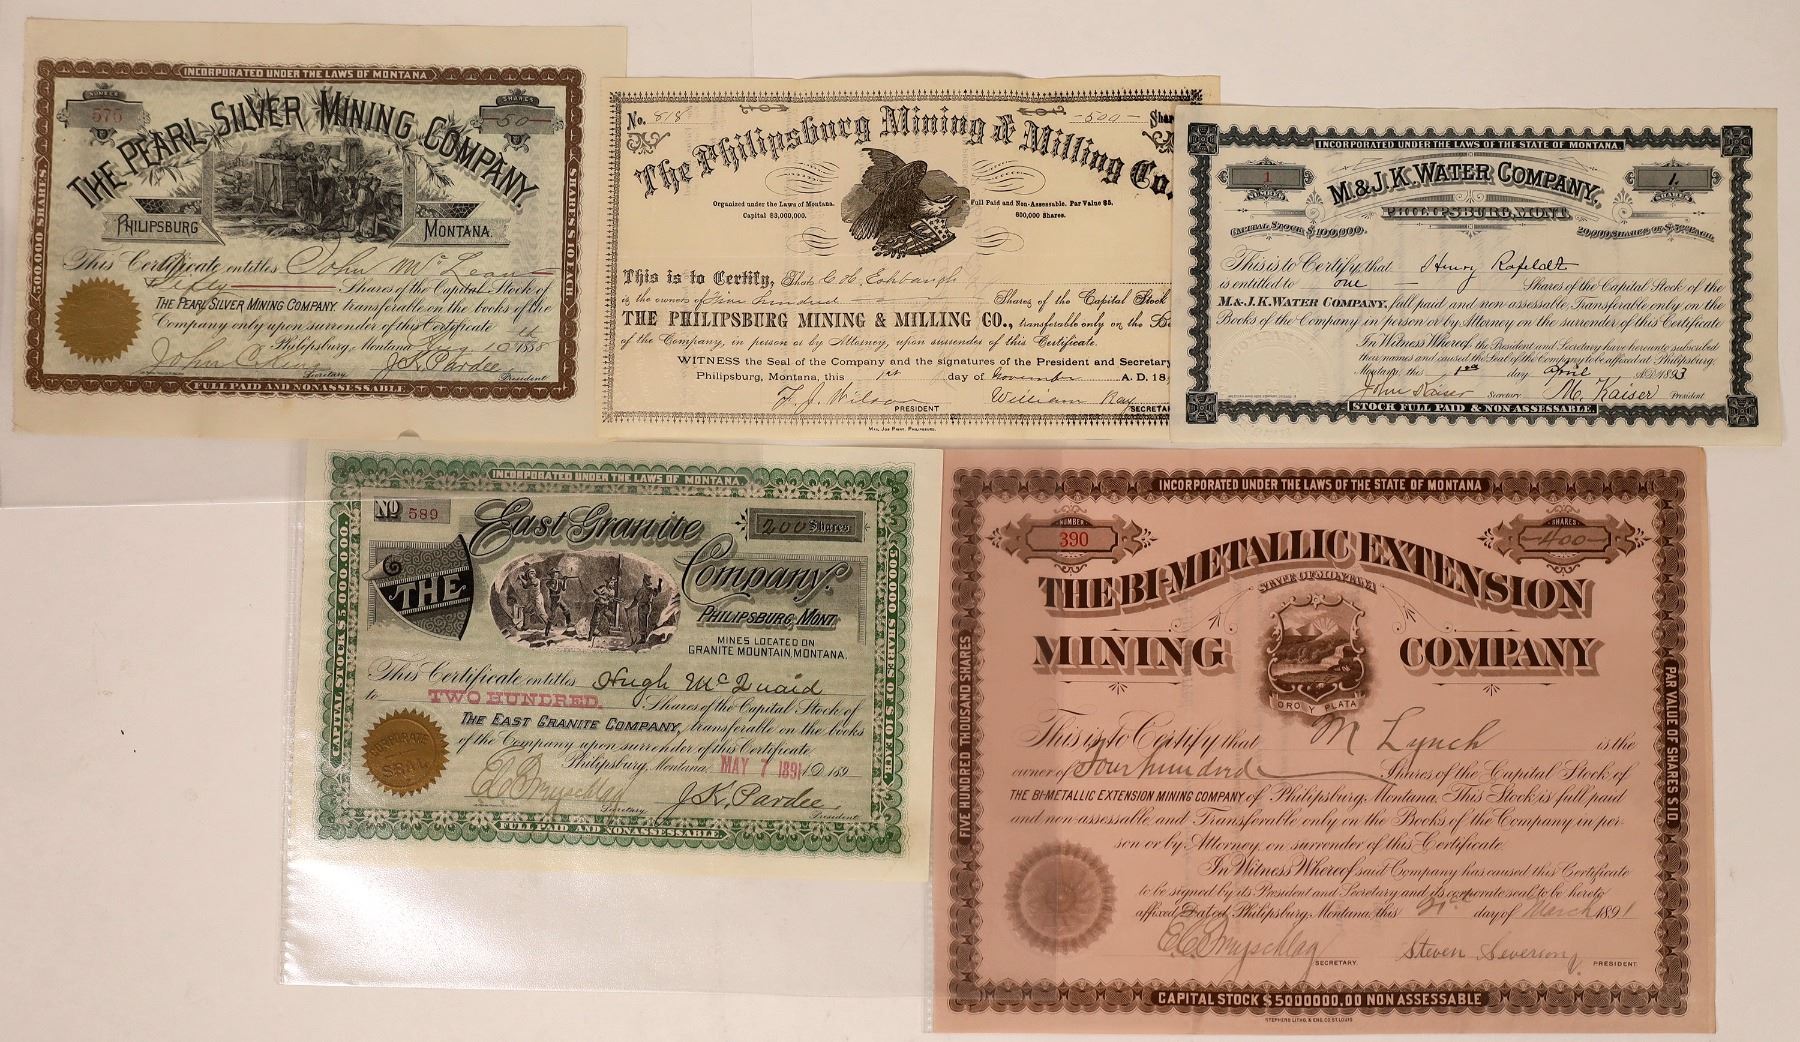 INCORPORATED UNDER THE LAWS OF MONTANA
NUMBER
SHARES
50
THE PEARL SILVER MINING COMPANY,
PHILIPSBURG
MONTANA.
500,000 SHARES.
SHARES $10 EACH.
This Certificate entitles John McLean
Fifty Shares of the Capital Stock of
THE PEARL SILVER MINING COMPANY, transferable on the books of the
Company only upon surrender of this Certificate
Philipsburg, Montana Aug 10th 1888
J.K. Pardee
Secretary
President
FULL PAID AND NONASSESSABLE
No. 818
500
The Philipsburg Mining & Milling Co.
Organized under the Laws of Montana.
Capital $3,000,000.
Full Paid and Non-Assessable. Par Value $5.
600,000 Shares.
This is to Certify, That C.H. Eshbaugh
is the owner of Five hundred Shares of the Capital Stock
THE PHILIPSBURG MINING & MILLING CO., transferable only on the
of the Company, in person or by Attorney, upon surrender of this Certificate.
WITNESS the Seal of the Company and the signatures of the President and Secretary
Philipsburg, Montana, this 1st day of November A. D. 18
F. J. Wilson
PRESIDENT
William Ray
MAIL JOB PRINT, PHILIPSBURG.
INCORPORATED UNDER THE LAWS OF THE STATE OF MONTANA.
1
NUMBER
1.
SHARES
M. & J. K. WATER COMPANY,
PHILIPSBURG, MONT.
CAPITAL STOCK $100,000.
20,000 SHARES OF $5.00 EACH.
This is to Certify that Henry Rofeldt
is entitled to one Shares of the Capital Stock of the
M. & J. K. WATER COMPANY, full paid and non-assessable, Transferable only on the
Books of the Company in person or by Attorney on the surrender of this Certificate
In Witness Whereof, the President and Secretary have hereunto subscribed
their names and caused the Seal of the Company to be affixed at Philipsburg,
Montana, this day April A.D. 1893
John Kaiser Secretary
M. Kaiser President
STOCK FULL PAID & NON ASSESSABLE.
INCORPORATED UNDER THE LAWS OF MONTANA
No 589
200 Shares
THE
East Granite
Company,
PHILIPSBURG, MONT.
MINES LOCATED ON
GRANITE MOUNTAIN, MONTANA.
CAPITAL STOCK $5,000,000.00.
500,000 SHARES OF $10 EACH.
This Certificate entitles Hugh McQuaid
to TWO HUNDRED. Shares of the Capital Stock of
THE EAST GRANITE COMPANY, transferable on the books
of the Company upon surrender of this Certificate
Philipsburg, Montana, MAY 7 1891 A.D. 189
CORPORATE
SEAL
Secretary
J. K. Pardee
President
FULL PAID AND NONASSESSABLE
INCORPORATED UNDER THE LAWS OF THE STATE OF MONTANA
NUMBER
390
SHARES
400
THE BI-METALLIC EXTENSION
STATE OF MONTANA
MINING COMPANY
ORO Y PLATA
FIVE HUNDRED THOUSAND SHARES
PAR VALUE OF SHARES $10.
This is to Certify that M Lynch is the
owner of Four hundred Shares of the Capital Stock of
THE BI-METALLIC EXTENSION MINING COMPANY of Philipsburg, Montana. This Stock is full paid
and non-assessable, and Transferable only on the Books of the Company in per-
son or by Attorney, on surrender of this Certificate.
In Witness Whereof said Company has caused this Certificate
to be signed by its President and Secretary and its corporate seal to be hereto
affixed, Dated, Philipsburg, Montana, this 21st day of March 1891
SECRETARY.
Steven Severson
PRESIDENT.
CAPITAL STOCK $5000000.00 NON ASSESSABLE
STEPHENS LITHO. & ENG. CO. ST. LOUIS